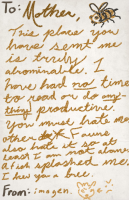 To: Mother,
This place you
have sent me
is truly
abominable. I
have had no time
to read or do any-
thing productive.
You must hate me
other Faune
also hate it so at
least I am not alone.
A fish splashed me.
I hex you a bree.
From: imogen.